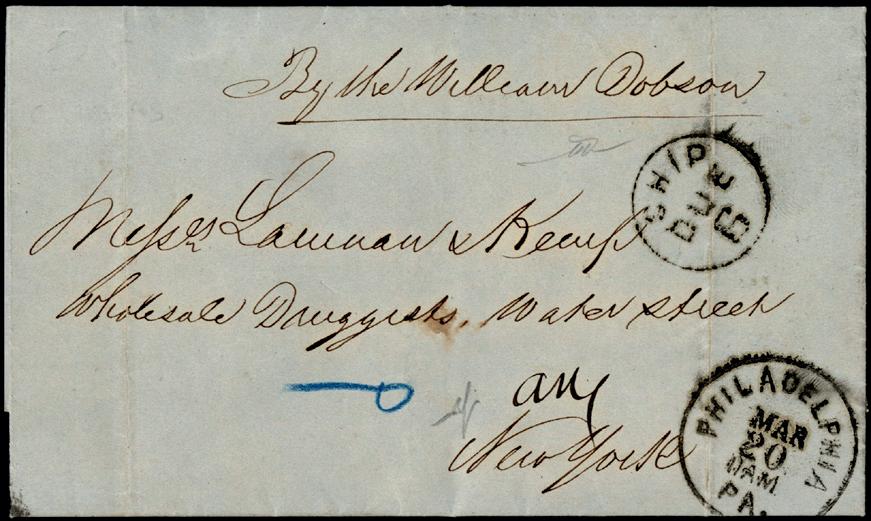 By the William Dobson
SHIP
DUE
6
Messrs Lanman & Kemp
Wholesale Druggists, Water street
New York
PHILADELPHIA
MAR
20
11AM
PA.